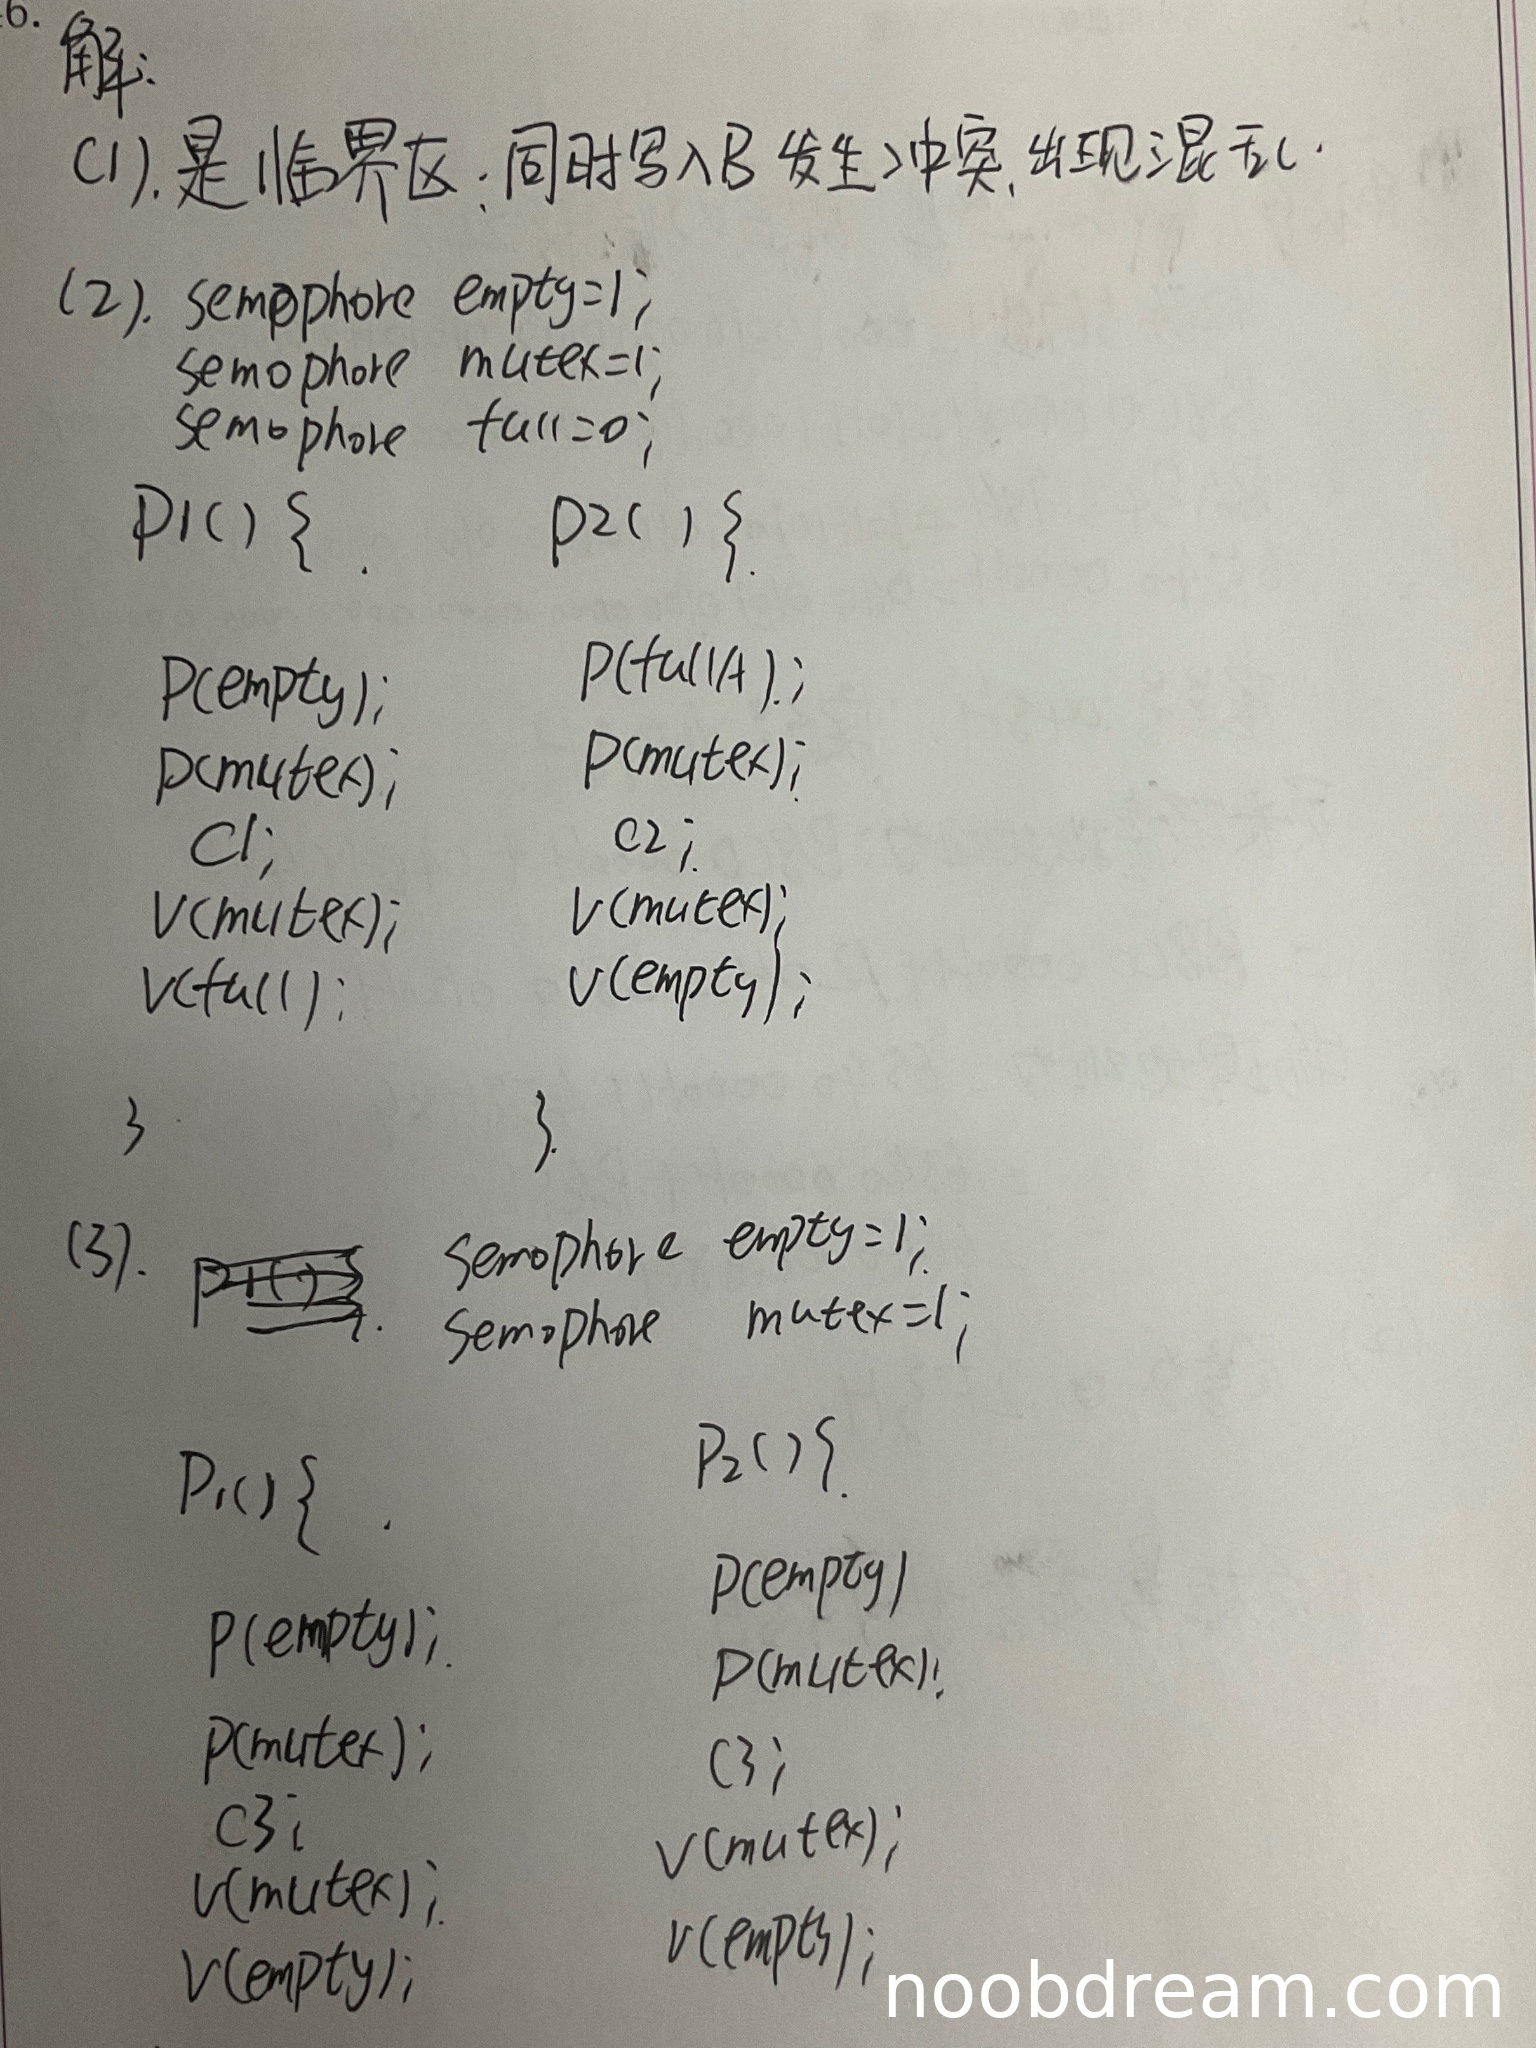 46.
解:
(1). 是临界区; 同时写入B发生冲突, 出现混乱.
(2). semophore empty=1;
semophore mutex=1;
semophore full=0;
P1() {
P(empty);
P(mutex);
C1;
V(mutex);
V(full);
}
P2() {
P(full);
P(mutex);
C2;
V(mutex);
V(empty);
}
(3). semophore empty=1;
semophore mutex=1;
P1() {
P(empty);
P(mutex);
C3;
V(mutex);
V(empty);
P2() {
P(empty)
P(mutex);
C3;
V(mutex);
V(empty);
noobdream.com